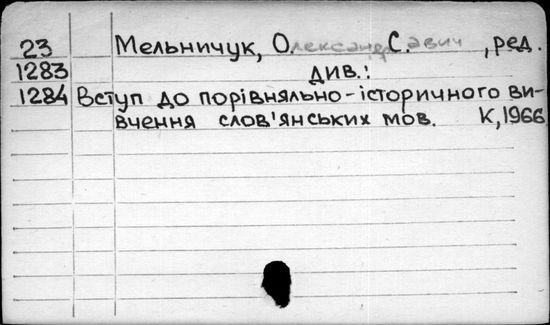 23 Мельничук, Олександр С.авич, ред.
1283 див.:
1284 Вступ до порівняльно-історичного ви-
вчення слов'янських мов. К, 1966